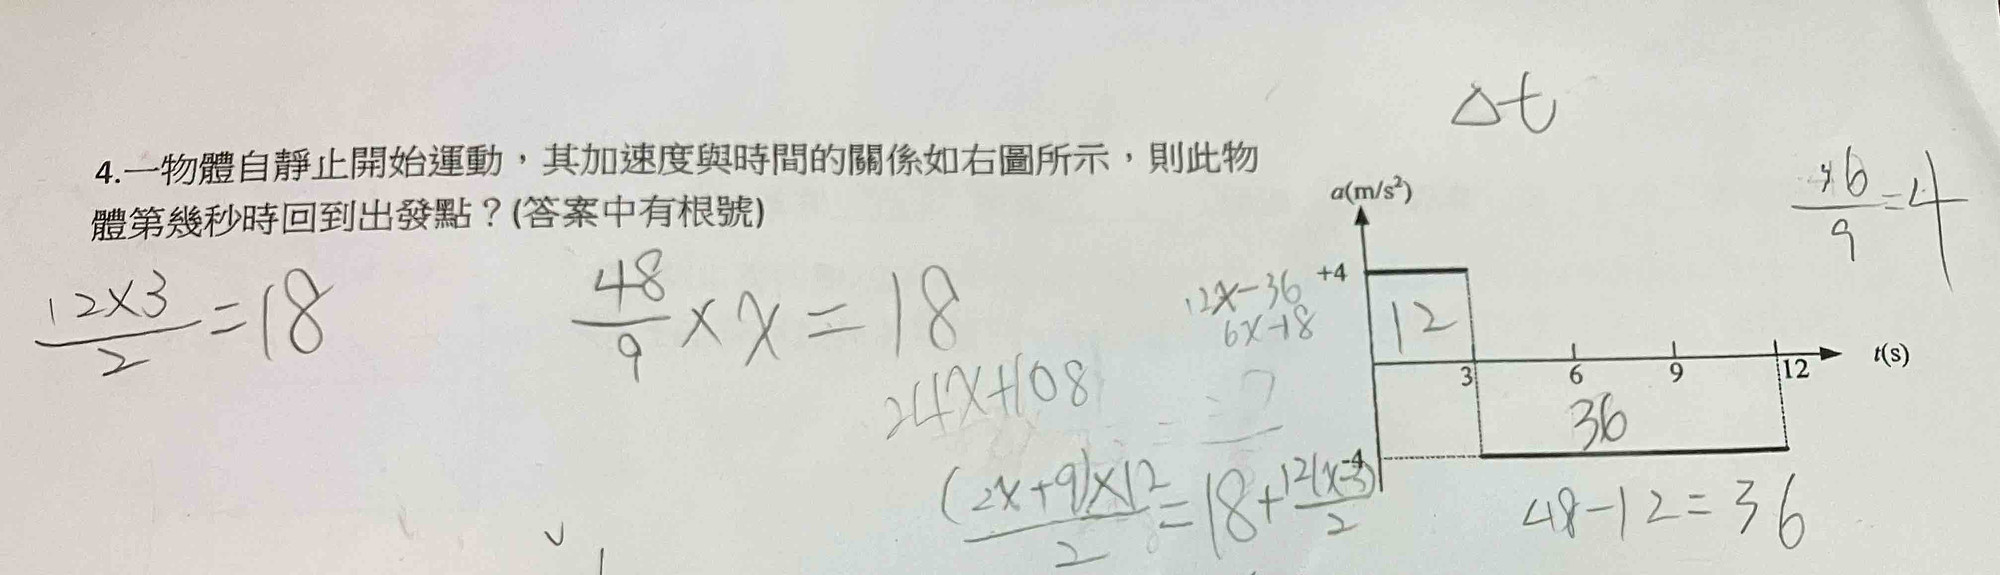 Δt
4.一物體自靜止開始運動，其加速度與時間的關係如右圖所示，則此物
體第幾秒時回到出發點？(答案中有根號)
a(m/s²)
36/9=4
12×3/2=18
48/9×x=18
12x-36
6x-18
+4
12
t(s)
3
6
9
12
24x+108
36
-4
(2x+9)×12/2=18+12(x-3)/2
48-12=36